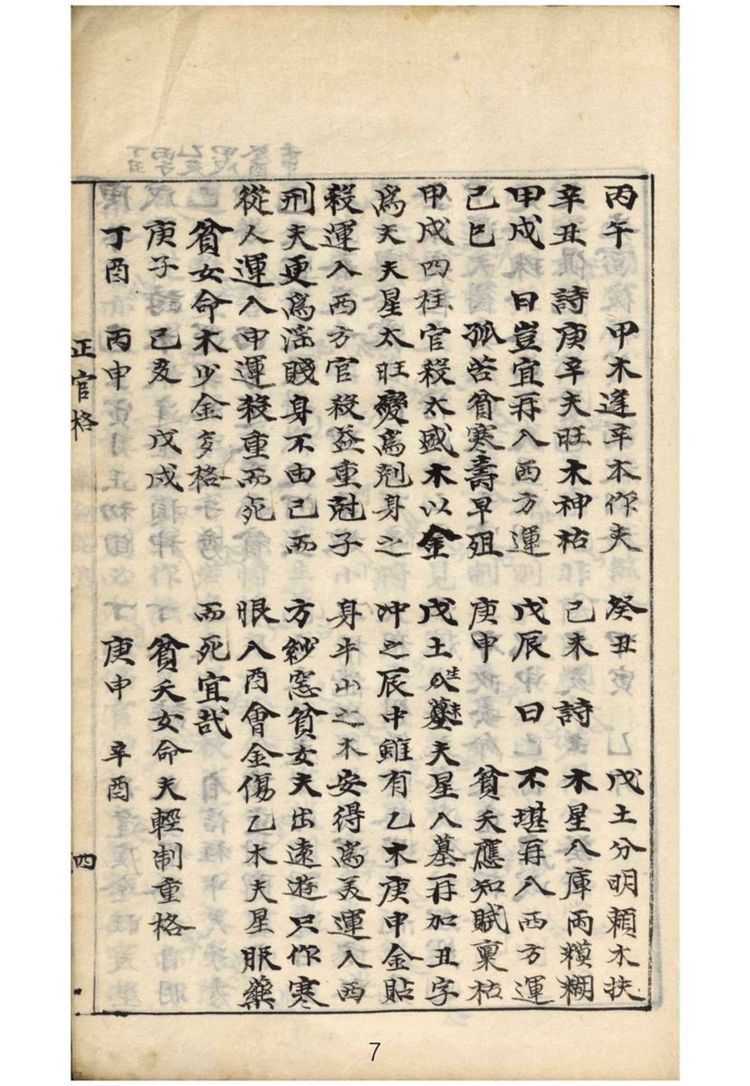 丙午　甲木逢辛本作夫
辛丑　詩庚辛夫旺木神枯
甲戌　曰豈宜再入西方運
己巳　孤苦貧寒壽早殂
甲戌四柱官殺太盛木以金
爲夫夫星太旺變爲剋身之
殺運入西方官殺益重尅子
刑夫更爲淫賤身不由己而
從人運入申運殺重而死
貧女命木少金多格
庚子　己亥　戊戌
丁酉　丙申
癸丑　戊土分明賴木扶
己未　詩　木星入庫兩糢糊
戊辰　曰　不堪再入西方運
庚申　貧夭應知賦稟枯
戊土生未入墓夫星入墓再加丑字
冲之辰中雖有乙木庚申金貼
身牛山之木安得爲美運入西
方紗窓貧女夫出遠遊只作寒
眼入酉會金傷乙木夫星服藥
而死宜哉
貧夭女命夫輕制重格
庚申　辛酉
正官格　四
7